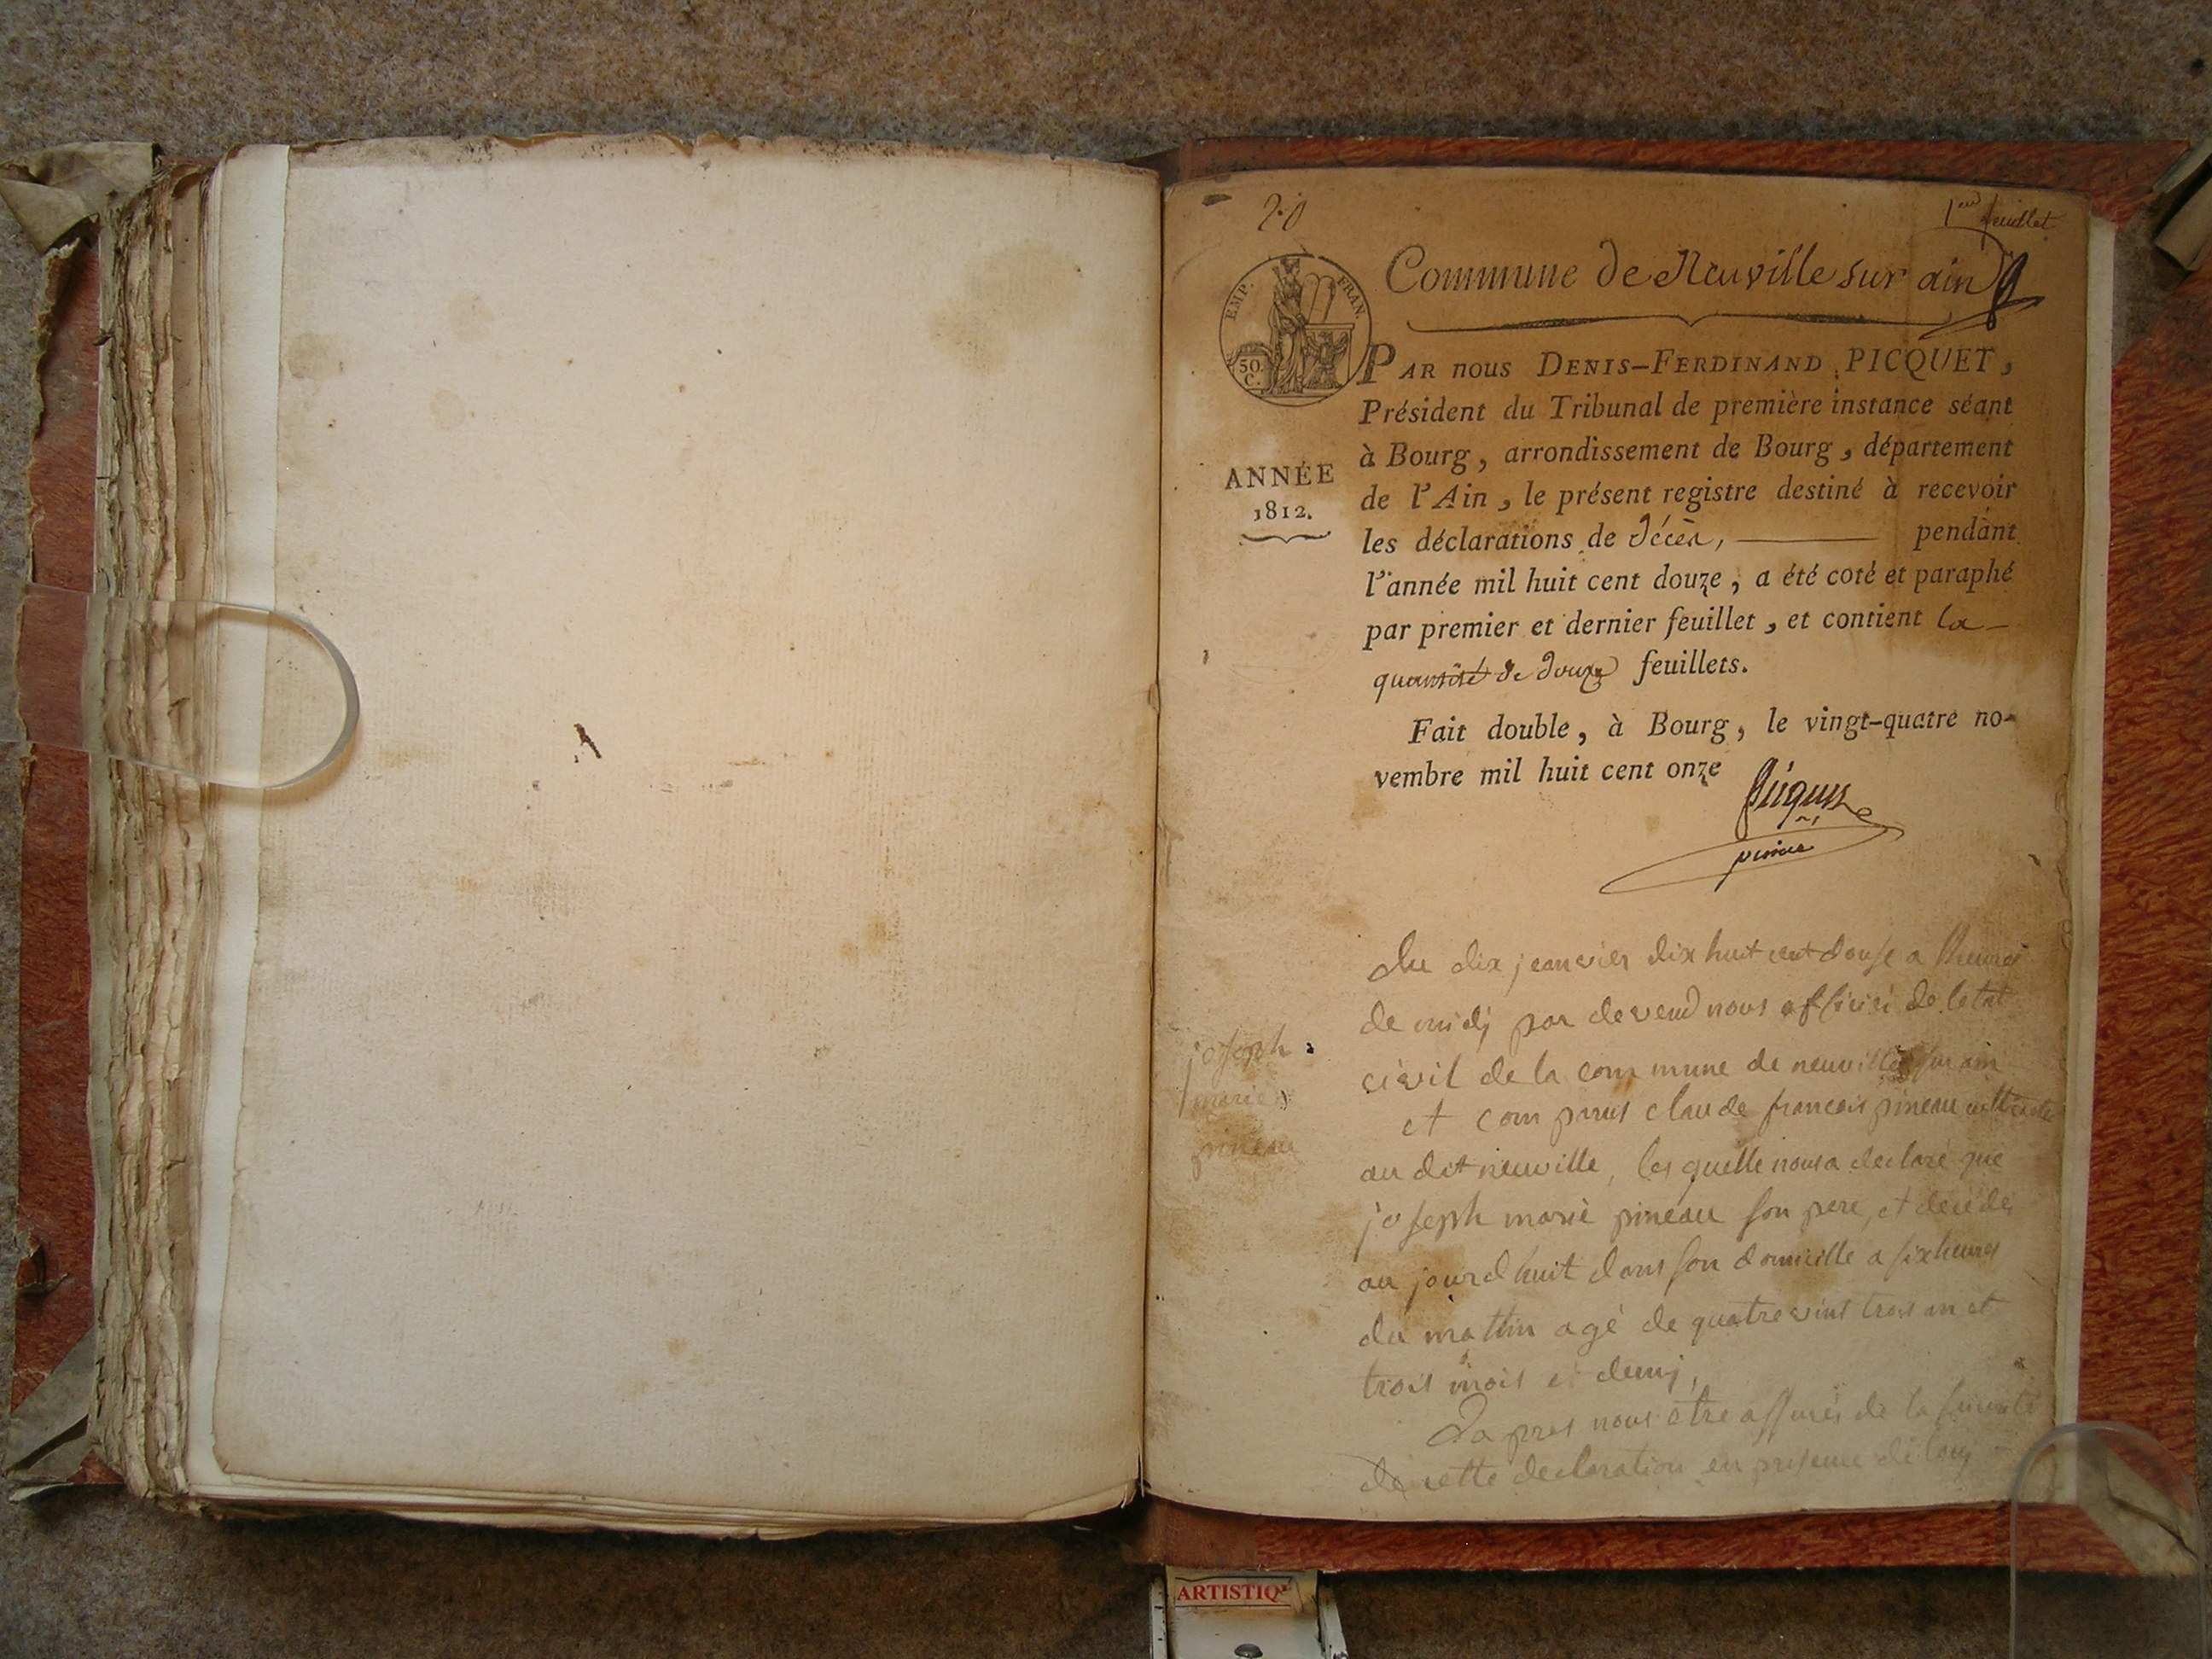 20
1er feuillet
Commune de Neuville sur ain
EMP. FRAN.
50.
C.
PAR nous DENIS-FERDINAND PICQUET,
Président du Tribunal de première instance séant
à Bourg, arrondissement de Bourg, département
ANNÉE
1812.
de l'Ain, le présent registre destiné à recevoir
les déclarations de décès, pendant
l'année mil huit cent douze, a été coté et paraphé
par premier et dernier feuillet, et contient la
quantité de douze feuillets.
Fait double, à Bourg, le vingt-quatre no-
vembre mil huit cent onze
Picquet
du dix jeanvier dix huit cent douse a lheures
de midj par devend nous officiei de letat
cievil de la com mune de neuville sur ain
et com parut claude francois pineau
au dit neuville, les quelle nous a declaré que
joseph marie pineau
joseph marie pineau son pere, et décédé
au jourdhuit dans son domicille a six heures
du mattin agé de quatre vint trois an et
trois mois e demj,
Da pres nous être assurés de la
de cette declaration en presence de
ARTISTIQ